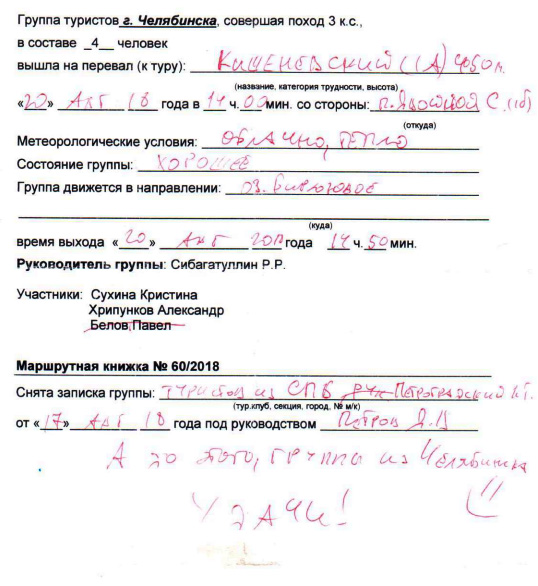 Группа туристов г. Челябинска, совершая поход 3 к.с.,
в составе _4__ человек
вышла на перевал (к туру): КИШЕНЕВСКИЙ (1А) 4050 м.
(название, категория трудности, высота)
«20» АВГ 18 года в 14 ч. 00 мин. со стороны: п. Двойной С. (1б)
(откуда)
Метеорологические условия: ОБЛАЧНО, ТЕПЛО
Состояние группы: ХОРОШЕЕ
Группа движется в направлении: оз.
(куда)
время выхода «20» АВГ года 14 ч. 50 мин.
Руководитель группы: Сибагатуллин Р.Р.
Участники: Сухина Кристина
Хрипунков Александр
Белов Павел
Маршрутная книжка № 60/2018
Снята записка группы: туристов из СПБ Петроградский
(тур.клуб, секция, город, № м/к)
от «17» АВГ 18 года под руководством Петров Д.
А до этого, группы из Челябинска
УДАЧИ!